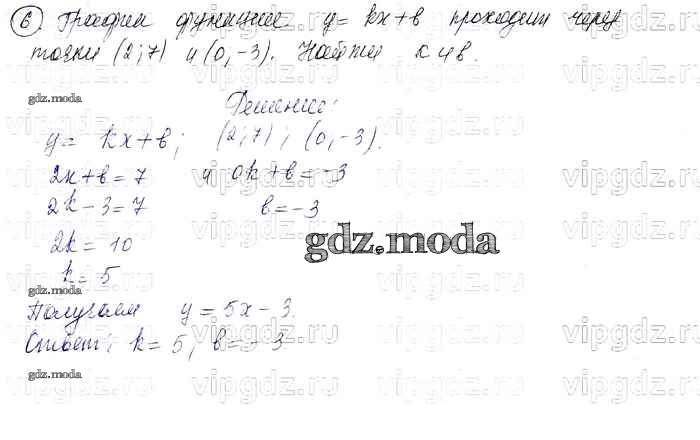 6. График функции y = kx + b проходит через
точки (2; 7) и (0, -3). Найти k и b.
gdz.moda
Решение:
y = kx + b; (2; 7); (0, -3).
2k + b = 7 и 0k + b = -3
2k - 3 = 7 b = -3
gdz.moda
2k = 10
k = 5
gdz.moda
Получаем y = 5x - 3.
Ответ: k = 5; b = -3
gdz.moda
vipgdz.ru